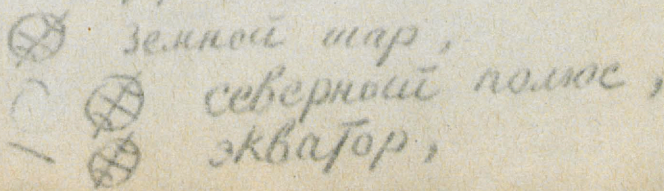 земной шар,
северный полюс,
экватор,